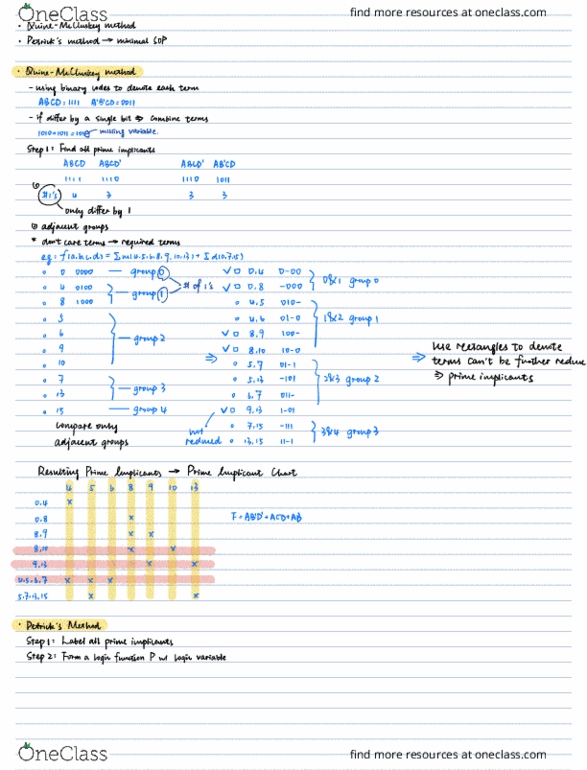 OneClass
find more resources at oneclass.com
· Quine-McCluskey method
· Petrick's method → minimal SOP
· Quine-McCluskey method
- using binary codes to denote each term
ABCD=1111 A'B'CD=0011
- if differ by a single bit ⇒ combine terms
missing variable.
Step 1: Find all prime implicants
ABCD ABCD' ABCD' AB'CD
1111 1110 1110 1011
#1's 4 3 3 3
only differ by 1
adjacent groups
* don't care terms → required terms
eg: f(a,b,c,d) = Σm(4.5.6.8.9.10.13) + Σd(0.7.15)
0 0000 — group 0
4 0100
8 1000
group 1
# of 1's
5
6
9
10
group 2
7
13
group 3
15 — group 4
compare only
adjacent groups
✓ 0.4 0-00
✓ 0.8 -000
0&1 group 0
4.5 010-
4.6 01-0
✓ 8.9 100-
✓ 8.10 10-0
1&2 group 1
5.7 01-1
5.13 -101
6.7 011-
✓ 9.13 1-01
2&3 group 2
7.15 -111
13.15 11-1
3&4 group 3
not
reduced
⇒ use rectangles to denote
terms can't be further reduce
⇒ prime implicants
Resulting Prime Implicants → Prime Implicant Chart
4 5 6 8 9 10 13
0.4 x
0.8 x
8.9 x x
8.10 x x
9.13 x x
4.5.6.7 x x x
5.7.13.15 x x
· Petrick's Method
Step 1: Label all prime implicants
Step 2: Form a logic function P w/ logic variable
OneClass
find more resources at oneclass.com